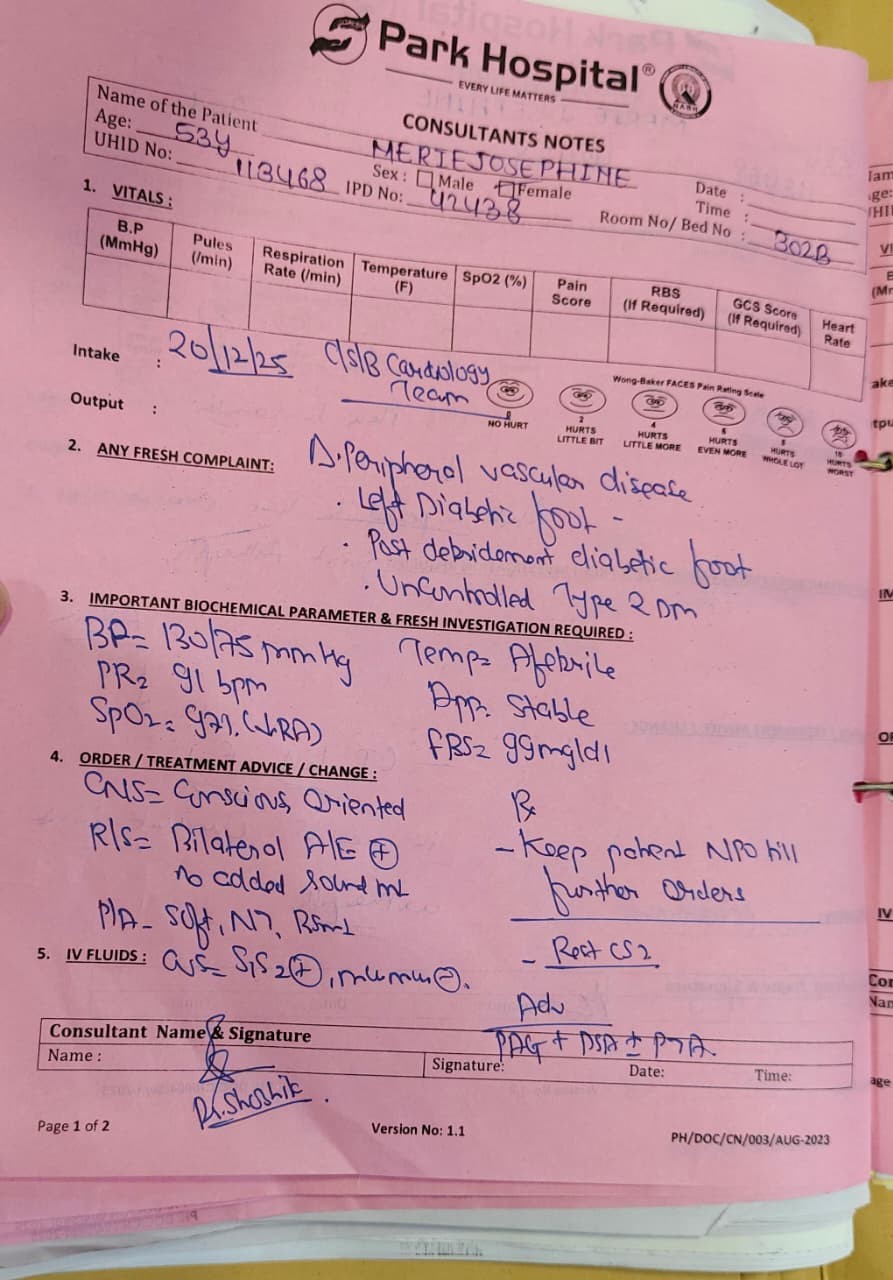 Park Hospital®
EVERY LIFE MATTERS
CONSULTANTS NOTES
Name of the Patient MERIEJOSEPHINE
Age: 53y Sex: Male Female Date :
UHID No: 113468 IPD No: 42438 Time :
Room No/ Bed No : 302B
1. VITALS :
B.P (MmHg) Pules (/min) Respiration Rate (/min) Temperature (F) SpO2 (%) Pain Score RBS (If Required) GCS Score (If Required) Heart Rate
Intake : 20/12/25 C/S/B Cardiology Team
Wong-Baker FACES Pain Rating Scale
Output :
0 NO HURT 2 HURTS LITTLE BIT 4 HURTS LITTLE MORE 6 HURTS EVEN MORE 8 HURTS WHOLE LOT 10 HURTS WORST
2. ANY FRESH COMPLAINT: Peripheral vascular disease
· Left Diabetic foot -
· Post debridement diabetic foot
· Uncontrolled Type 2 DM
3. IMPORTANT BIOCHEMICAL PARAMETER & FRESH INVESTIGATION REQUIRED :
BP= 130/75 mmHg Temp= Afebrile
PR= 91 bpm App: Stable
SpO2= 97%. FBS= 99mg/dl
4. ORDER / TREATMENT ADVICE / CHANGE :
CNS= Conscious, Oriented Rx
R/S= Bilateral A/E ⊕ - Keep patient NPO till
no added sound further orders
P/A- Soft, NT,
- Rest CS2
5. IV FLUIDS : CVS= S1S2⊕, murmur⊖.
Adv
PAG + DSA ± PTA
Consultant Name & Signature
Name : Signature: Date: Time:
Dr. Shoshit
Page 1 of 2 Version No: 1.1 PH/DOC/CN/003/AUG-2023